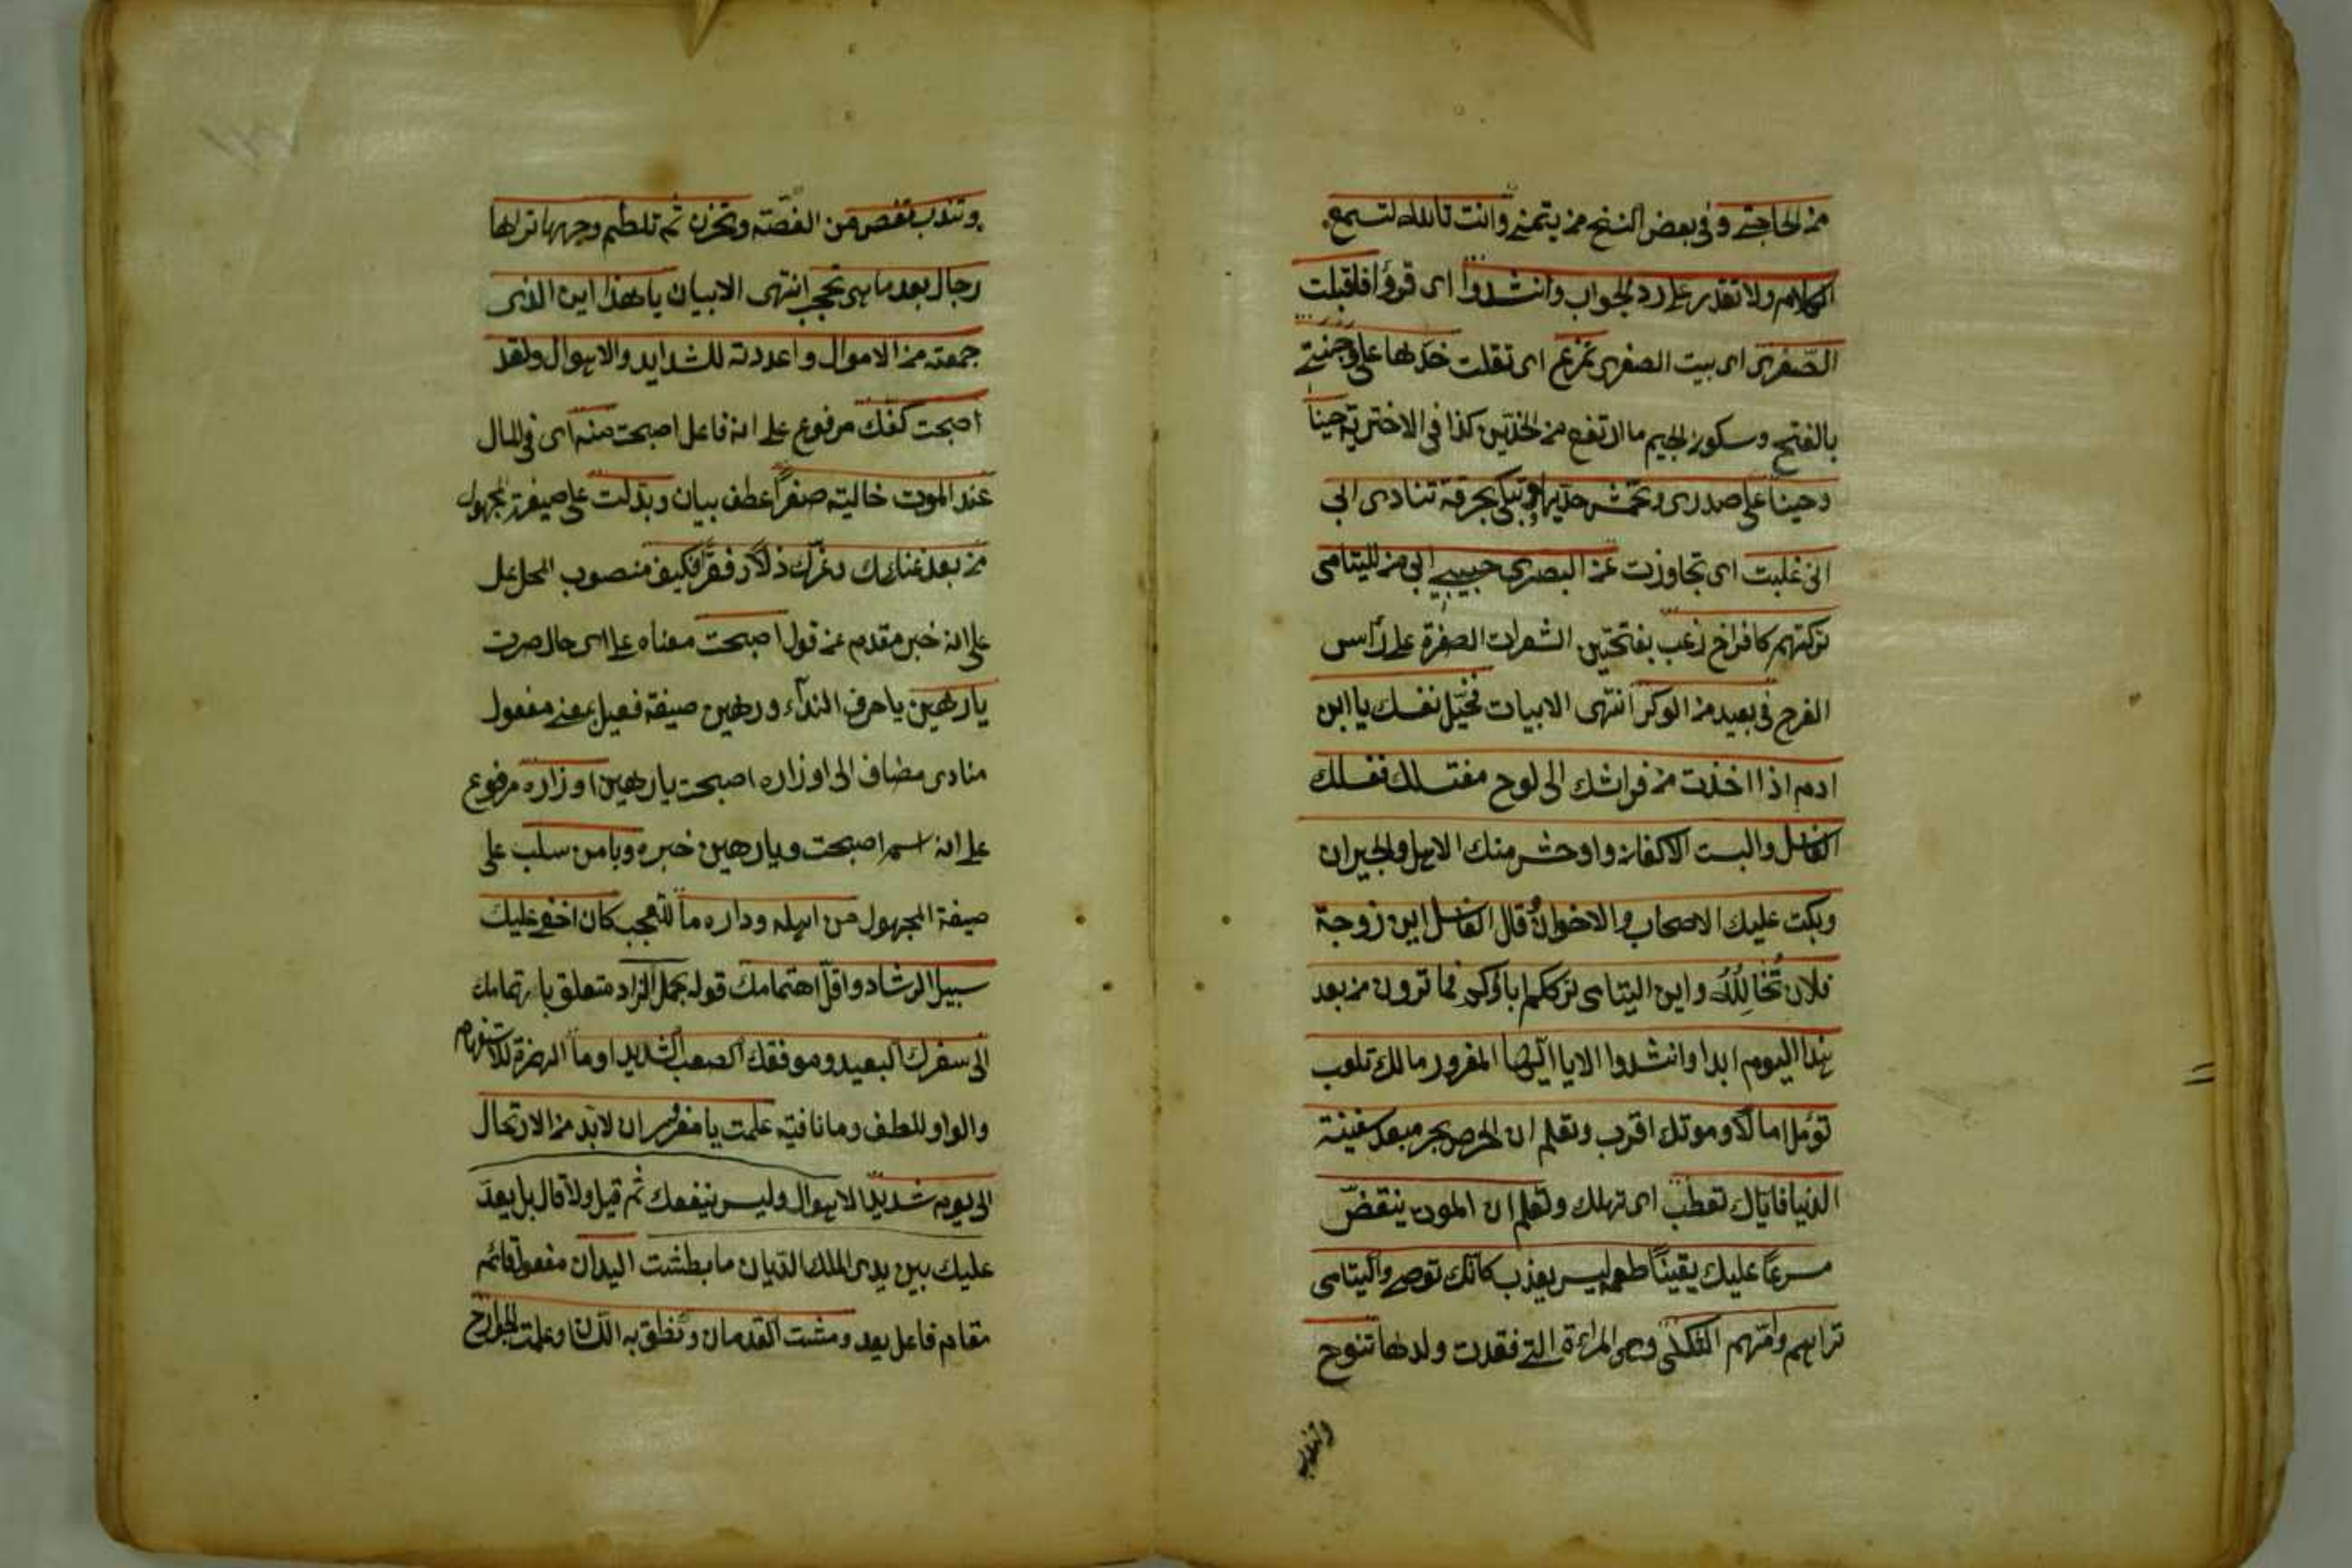 من الحاجتي وفي بعض النسخ من يتمنى وانت تالله لتسمع
الكلام ولا تقدر على رد الجواب وانشدوا اى قرؤا فاقبلت
الصغرى اى بيت الصغرى تمزع اى تقلت خدها على وجنتي
بالفتح وسكون الجيم ما ارتفع من الخدين كذا في الاخترية حينا
وحينا على صدرى وتبكى بحرقة تنادى ابى
انى غلبت اى تجاوزت عن البصرى حبيبى ابى من لليتامى
تركتهم كافراخ زغب بفتحتين الشعرات الصفرة على رأس
الفرح في بعيد من الوكر انتهى الابيات فخيّل نفسك يا ابن
ادم اذا اخذت من فراشك الى لوح مغتسلك فغسلك
الغاسل والبست الاكفان واوحش منك الاهل والجيران
وبكت عليك الاصحاب والاخوان قال الغاسل اين زوجة
فلان تُخَالِلُهُ واين اليتامى ترككم اباؤكم فما ترون من بعد
هذا اليوم ابدا وانشدوا الا يا ايّها المغرور مالك تلعب
تؤمل امالا وموتك اقرب وتعلم ان الحرص بحر مبعد سفينة
الدنيا فاياك تعطب اى تهلك وتعلم ان الموت ينقضّ
مسرعًا عليك يقينًا طعمه ليس يعذب كانّك توصى واليتامى
تراهم وامّهم الثكلى وهى المراءة التى فقدت ولدها تنوح
وتندب
وتندب تغصص من الغصّة وتحزن ثم تلطم وجهها تراها
رجال بعد ما هى تحجب انتهى الابيات يا هذا اين الذى
جمعته من الاموال واعددته للشدايد والاهوال ولقد
اصبحت كفك مرفوع على انه فاعل اصبحت منه اى في المال
عند الموت خالية صفرًا عطف بيان وبدّلت على صيغة المجهول
من بعد غنائك وعزّك ذلا وفقرا فكيف منصوب المحل على
على انه خبر مقدم عن قول اصبحت معناه على اى حال صرت
يا رهين يا حرف النداء ورهين صيغة فعيل بمعنى مفعول
منادى مضاف الى اوزاره اصبحت يا رهين اوزاره مرفوع
على انه اسم اصبحت ويا رهين خبره ويا من سلب على
صيغة المجهول من اهله وداره ما للتعجب كان اخفى عليك
سبيل الرشاد واقلّ اهتمامك قوله بحمل الزاد متعلق باهتمامك
الى سفرك البعيد وموقفك الصعب الشديد اوما الهمزة للاستفهام
والواو للعطف وما نافية علمت يا مغرور ان لا بد من الارتحال
الى يوم شديد الاهوال وليس ينفعك ثم قيل ولا قال بل يعدّ
عليك بين يدى الملك الديان ما بطشت اليدان مفعول قائم
مقام فاعل يعد ومشت القدمان ونطق به اللسان وعلمت الجوارح